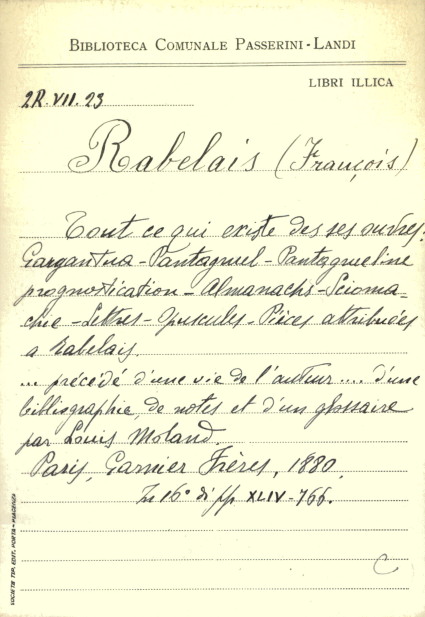 BIBLIOTECA COMUNALE PASSERINI-LANDI
LIBRI ILLICA
2R.VII.23
Rabelais (François)
Tout ce qui existe des ses œuvres:
Gargantua - Pantagruel - Pantagrueline
prognostication - Almanachs - Scioma-
chie - Lettres - Opuscules - Pièces attribuées
a Rabelais.
... précédé d'une vie de l'auteur .... d'une
bibliographie, de notes et d'un glossaire
par Louis Moland.
Paris, Garnier Frères, 1880
In 16° di pp XLIV-766.
C
SOCIETÀ TIP. EDIT. PORTA - PIACENZA